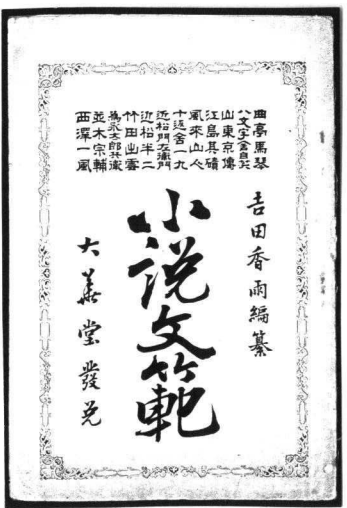 曲亭馬琴
八文字舎自笑
山東京傳
江島其磧
風來山人
十返舍一九
近松門左衛門
近松半二
竹田出雲
爲永太郎兵衛
並木宗輔
西澤一風
吉田香雨編纂
小説文範
大華堂發兌